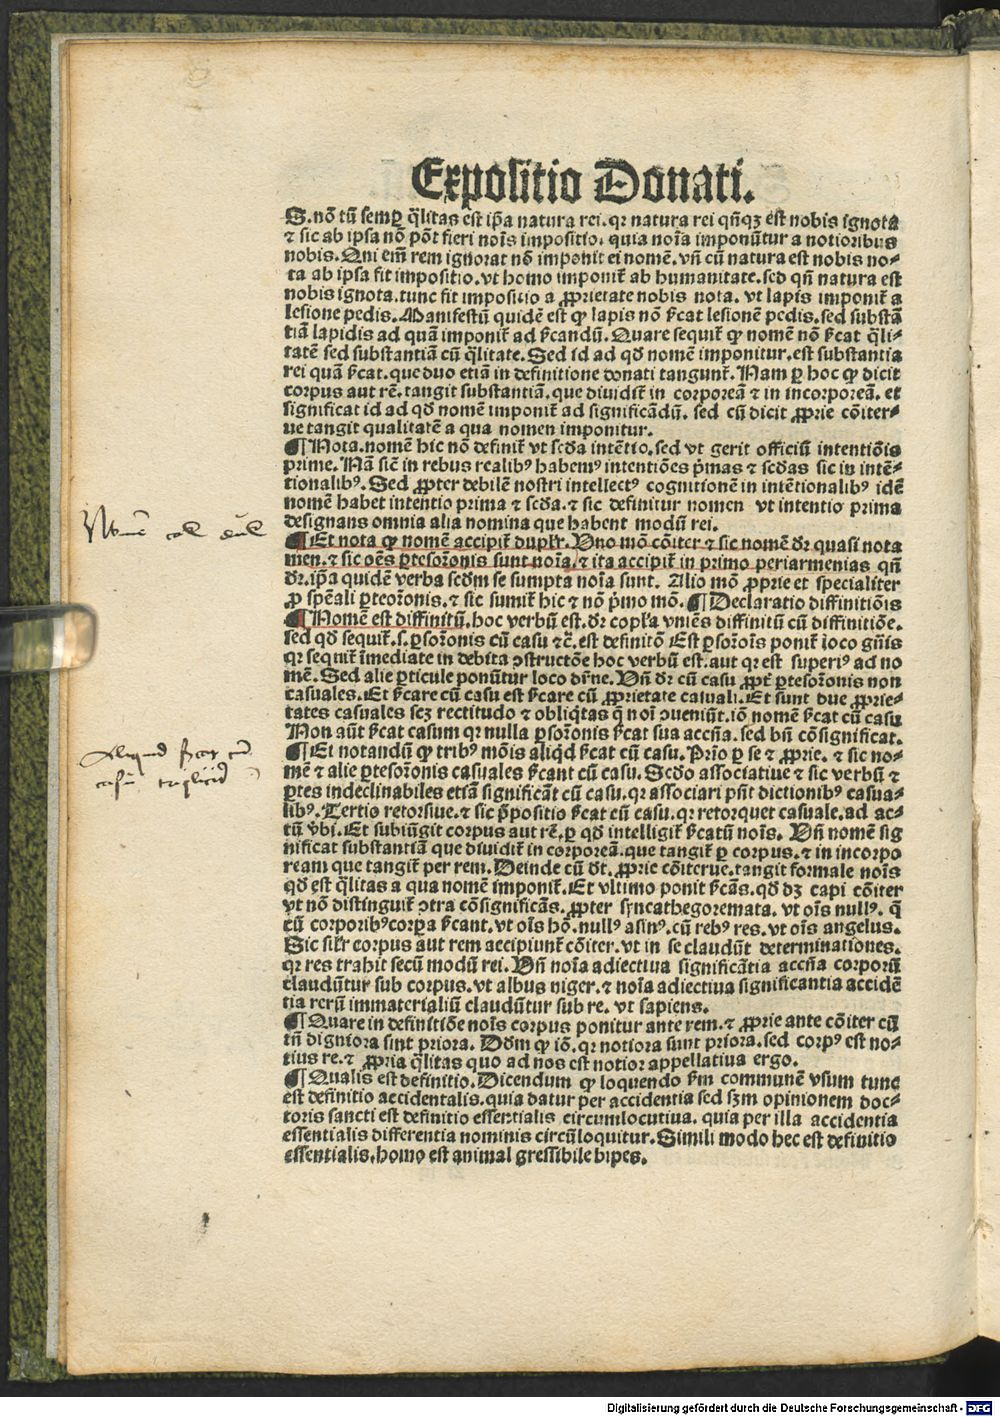 Expositio Donati.
S. nō tm̄ semꝑ q̄litas est ip̄a natura rei. qꝛ natura rei qn̄qꝫ est nobis ignota
⁊ sic ab ipsa nō pōt fieri noīs impositio. quia noīa imponūtur a notioribus
nobis. Qui em̄ rem ignorat nō imponit ei nomē. vn̄ cū natura est nobis no⸗
ta ab ipsa fit impositio. vt homo imponit̄ ab humanitate. sed qn̄ natura est
nobis ignota. tunc fit impositio a ꝓprietate nobis nota. vt lapis imponit̄ a
lesione pedis. Manifestū quidē est ꝙ lapis nō ſ̄cat lesionē pedis. sed substā
tiā lapidis ad quā imponit̄ ad ſ̄candū. Quare sequit̄ ꝙ nomē nō ſ̄cat q̄li⸗
tatē sed substantiā cū q̄litate. Sed id ad qd̄ nomē imponitur. est substantia
rei quā ſ̄cat. que duo etiā in definitione donati tangunt̄. Nam ꝑ hoc ꝙ dicit
corpus aut rē. tangit substantiā. que diuidit̄ in corporeā ⁊ in incorporeā. et
significat id ad qd̄ nomē imponit̄ ad significādū. sed cū dicit ꝓprie cōiter⸗
ue tangit qualitatē a qua nomen imponitur.
¶ Nota. nomē hic nō definit̄ vt scd̄a intētio. sed vt gerit officiū intentiōis
prime. Nā sicut in rebus realibꝰ habemꝰ intentiōes p̄mas ⁊ scd̄as sic in intē⸗
tionalibꝰ. Sed ꝓpter debilē nostri intellectꝰ cognitionē in intētionalibꝰ idē
nomē habet intentio prima ⁊ scd̄a. ⁊ sic definitur nomen vt intentio prima
designans omnia alia nomina que habent modū rei.
Nomē
¶ Et nota ꝙ nomē accipit̄ duplr̄. Uno mō cōiter ⁊ sic nomē dr̄ quasi nota
men. ⁊ sic oēs ꝑtesor̄onis sunt noīa. ⁊ ita accipit̄ in primo periarmenias qn̄
dr̄. ip̄a quidē verba scd̄m se sumpta noīa sunt. Alio mō ꝓprie et specialiter
ꝓ spēali ꝑteor̄onis. ⁊ sic sumit̄ hic ⁊ nō p̄mo mō. ¶ Declaratio diffinitiōis
¶ Nomē est diffinitū. hoc verbū est. dr̄ copl̄a vniēs diffinitū cū diffinitiōe.
sed qd̄ sequit̄. s. ꝑsor̄onis cū casu ⁊c̄. est definitō Est ꝑsor̄oīs ponit̄ loco gn̄is
qꝛ sequit̄ īmediate in debita ↄstructōe hoc verbū est. aut qꝛ est superiꝰ ad no
mē. Sed alie ꝑticule ponūtur loco dr̄ne. Un̄ dr̄ cū casu ꝓpt̄ ꝑtesor̄onis non
casuales. Et ſ̄care cū casu est ſ̄care cū ꝓprietate casuali. Et sunt due ꝓprie⸗
tates casuales scꝫ rectitudo ⁊ obliq̄tas q̄ noī ↄueniūt. iō nomē ſ̄cat cū casu
Non aūt ſ̄cat casum qꝛ nulla ꝑsor̄onis ſ̄cat sua accn̄a. sed bn̄ cōsignificat.
¶ Et notandū ꝙ tribꝰ mōis aliqd̄ ſ̄cat cū casu. Prīo ꝑ se ⁊ ꝓprie. ⁊ sic no⸗
mē ⁊ alie ꝑtesor̄onis casuales ſ̄cant cū casu. Scd̄o associatiue ⁊ sic verbū ⁊
ꝑtes indeclinabiles etiā significāt cū casu. qꝛ associari pn̄t dictionibꝰ casua⸗
libꝰ. Tertio retorsiue. ⁊ sic p̄positio ſ̄cat cū casu. qꝛ retorquet casuale. ad ac⸗
tū v̄bi. Et subiūgit corpus aut rē. ꝑ qd̄ intelligit̄ ſ̄catū noīs. Un̄ nomē sig
nificat substantiā que diuidit̄ in corporeā. que tangit̄ ꝑ corpus. ⁊ in incorpo
ream que tangit̄ per rem. Deinde cū dt̄. ꝓprie cōiterue. tangit formale noīs
qd̄ est q̄litas a qua nomē imponit̄. Et vltimo ponit ſ̄cās. qd̄ dꝫ capi cōiter
vt nō distinguit̄ ↄtra cōsignificās. ꝓpter syncathegoremata. vt oīs nullꝰ. q̄
cū corporibꝰ corꝑa ſ̄cant. vt oīs hō. nullꝰ asinꝰ. cū rebꝰ res. vt oīs angelus.
Sic silr̄ corpus aut rem accipiunt̄ cōiter. vt in se claudūt determinationes.
qꝛ res trahit secū modū rei. Un̄ noīa adiectiua significātia accn̄a corporū
claudūtur sub corpus. vt albus niger. ⁊ noīa adiectiua significantia accidē
tia rerū immaterialiū claudūtur sub re. vt sapiens.
¶ Quare in definitiōe noīs corpus ponitur ante rem. ⁊ ꝓprie ante cōiter cū
tn̄ digniora sint priora. Dd̄m ꝙ iō. qꝛ notiora sunt priora. sed corpꝰ est no⸗
tius re. ⁊ ꝓpria q̄litas quo ad nos est notior appellatiua ergo.
¶ Qualis est definitio. Dicendum ꝙ loquendo ſm̄ communē vsum tunc
est definitio accidentalis. quia datur per accidentia sed sꝫm opinionem doc⸗
toris sancti est definitio essentialis circumlocutiua. quia per illa accidentia
essentialis differentia nominis circūloquitur. Simili modo hec est definitio
essentialis. homo est animal gressibile bipes.
Digitalisierung gefördert durch die Deutsche Forschungsgemeinschaft - DFG